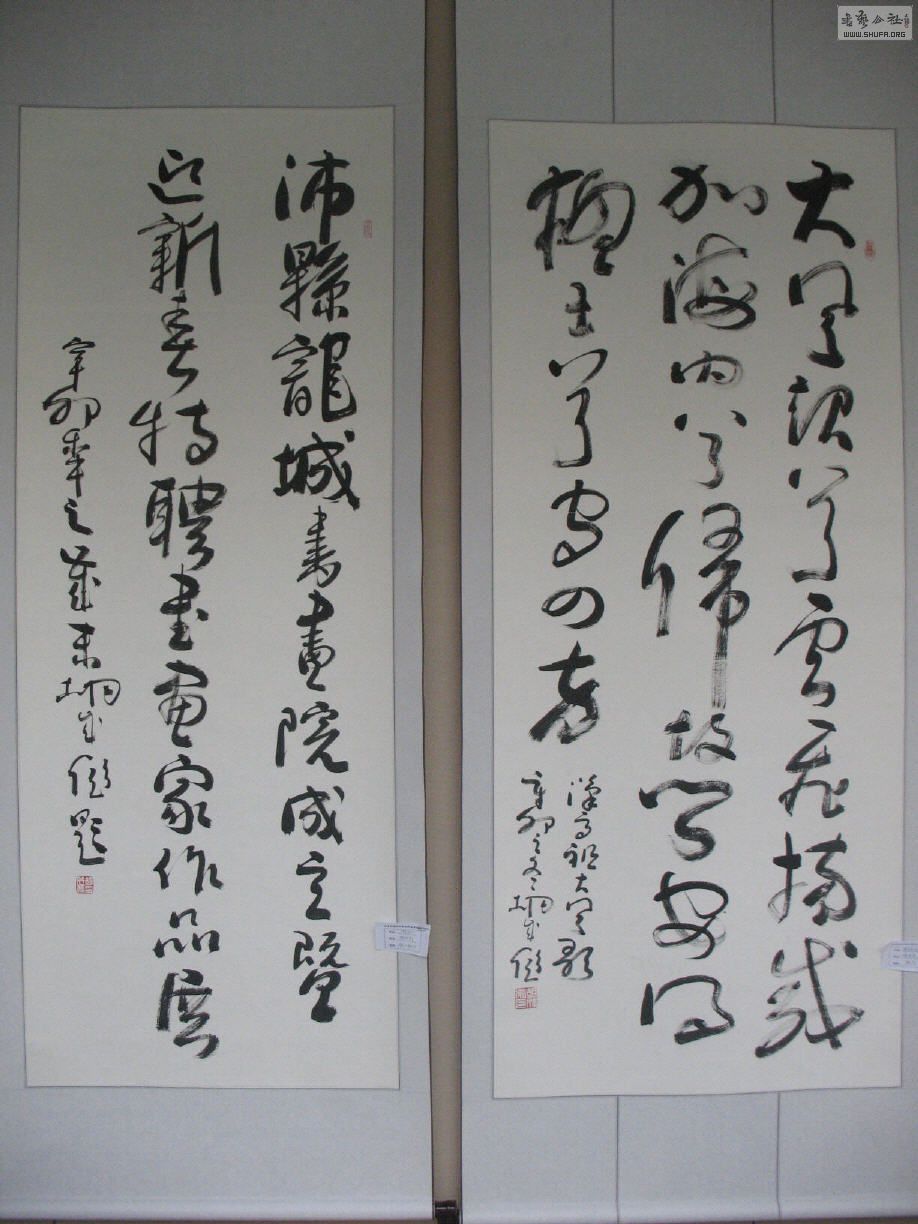 書藝公社
WWW.SHUFA.ORG
大風起兮雲飛揚威
加海内兮歸故鄉安得
猛士兮守四方
漢高祖大風歌
辛卯之冬
沛縣龍城書畫院成立暨
迎新春特聘書画家作品展
辛卯年之歲末 題